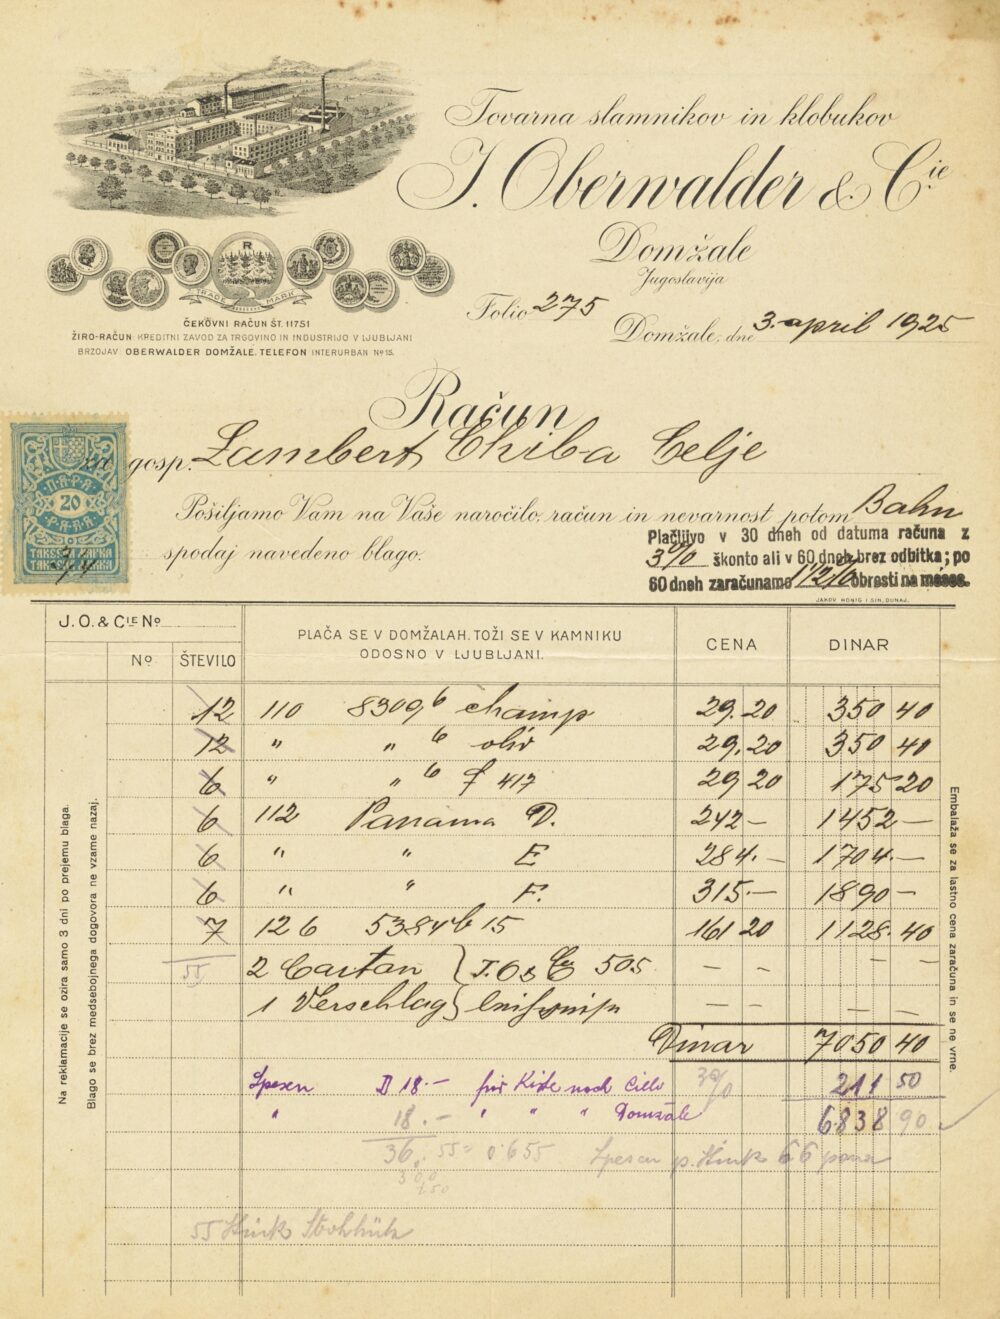 Tovarna slamnikov in klobukov
J. Oberwalder & Cie
Domžale
Jugoslavija
R
TRADE MARK
ČEKOVNI RAČUN ŠT. 11751
ŽIRO-RAČUN KREDITNI ZAVOD ZA TRGOVINO IN INDUSTRIJO V LJUBLJANI
BRZOJAV OBERWALDER DOMŽALE. TELEFON INTERURBAN No 15.
Folio 275
Domžale, dne 3. april 1925
Račun
za gosp. Lambert Chiba Celje
ПАРА
20
PARA
ТАКСЕНА МАРКА
TAKSENA MARKA
3/4
Pošiljamo Vam na Vaše naročilo, račun in nevarnost potom Bahn
spodaj navedeno blago.
Plačljivo v 30 dneh od datuma računa z
3% škonto ali v 60 dneh brez odbitka; po
60 dneh zaračunamo 1 1/2% obresti na mesec.
JAKOV HÖNIG I SIN, DUNAJ.
J. O. & CIE No
No ŠTEVILO
PLAČA SE V DOMŽALAH. TOŽI SE V KAMNIKU
ODOSNO V LJUBLJANI.
CENA DINAR
12 110 8309 6 champ 29.20 350 40
12 " " 6 oliv 29.20 350 40
6 " " 6 f 417 29 20 175 20
6 112 Panama D. 242 - 1452 -
6 " " E 284.- 1704.-
6 " " F. 315.- 1890 -
7 126 5384 b 15 161 20 1128.40
55 2 Carton } J. O & C 505 - - - -
1 Verschlag } - - - -
Dinar 7050 40
Spesen D 18.- für Kiste nach Celje 3% 211 50
" 18.- " " " Domžale 6838 90
36. 55 = 0.655 Spesen p. Stück 66 para
300
250
55 Stück Strohhüte
Na reklamacije se ozira samo 3 dni po prejemu blaga.
Blago se brez medsebojnega dogovora ne vzame nazaj.
Embalaža se za lastno cena zaračuna in se ne vrne.